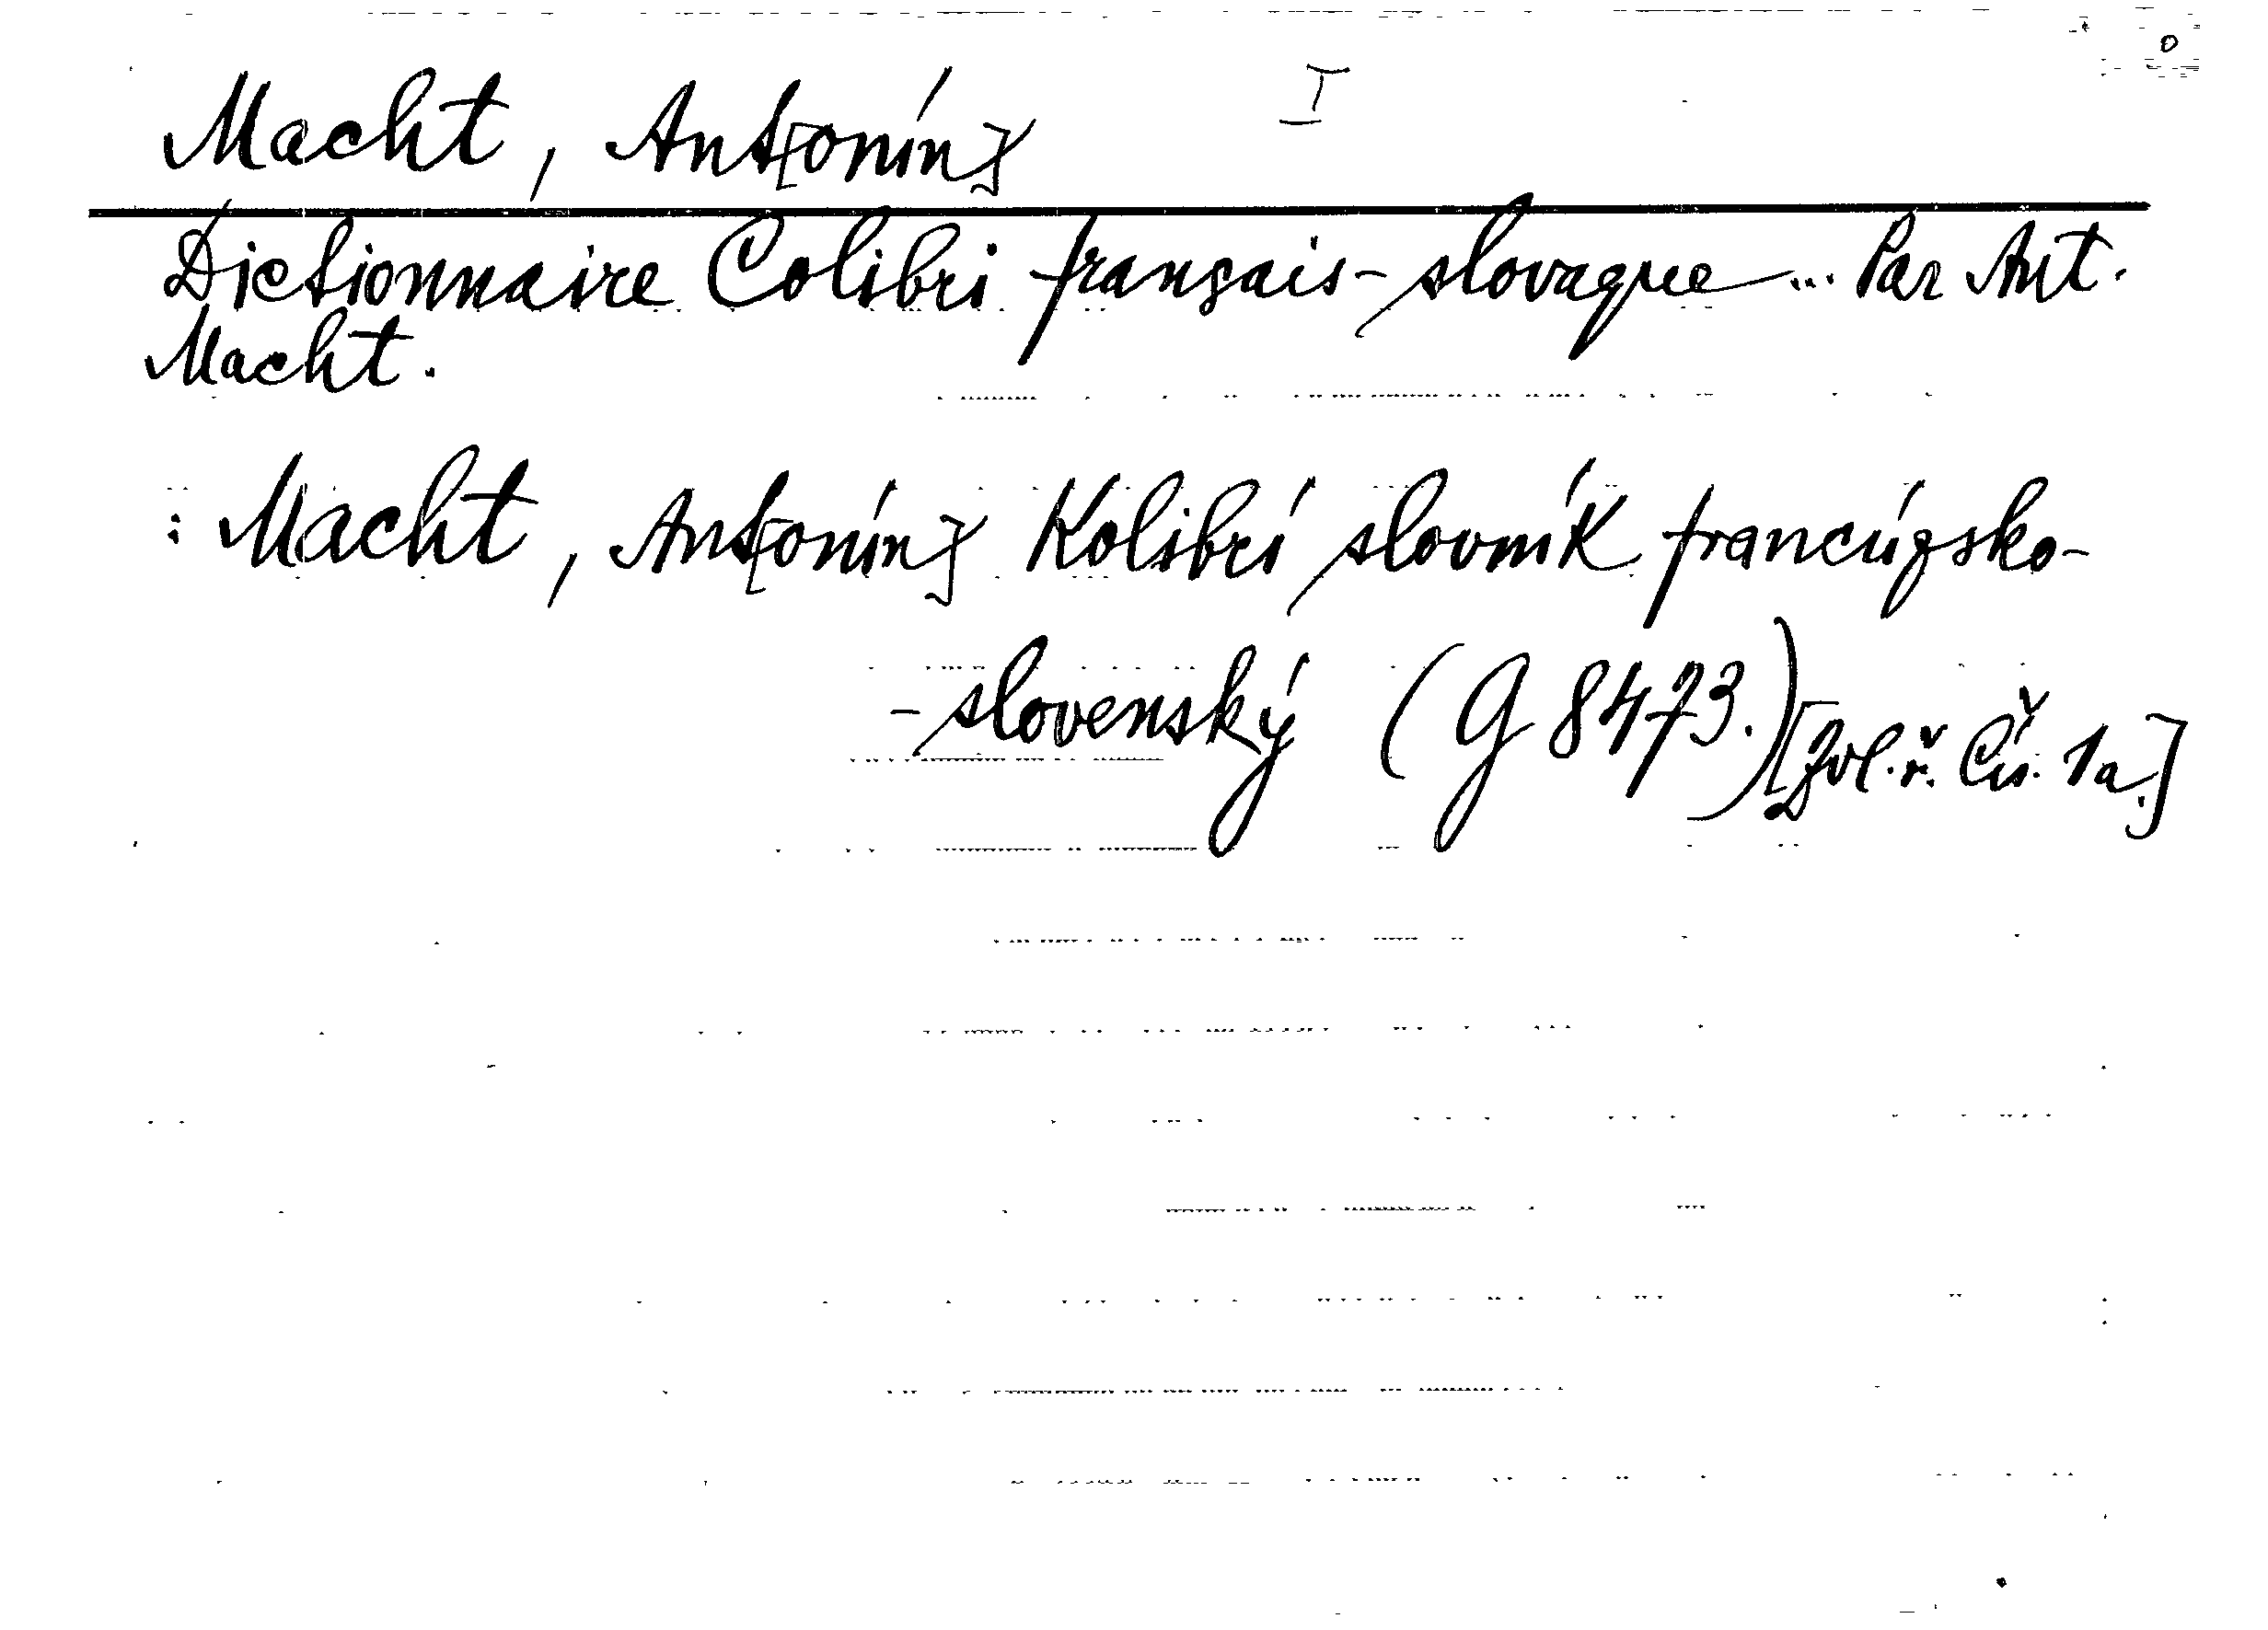 Macht, Ant[onín] I
Dictionnaire Colibri français-slovaque... Par Ant.
Macht.
: Macht, Ant[onín] Kolibrí slovník francúzsko-
-slovenský (G 8473.) [Zvl. ř. Čís. 1a.]